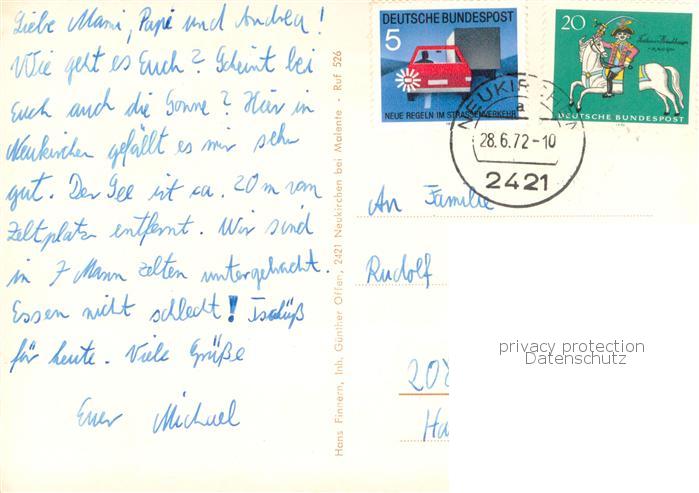 Liebe Mami, Papi und Andrea!
Wie geht es Euch? Scheint bei
Euch auch die Sonne? Hier in
Neukirchen gefällt es mir sehr
gut. Der See ist ca. 20 m vom
Zeltplatz entfernt. Wir sind
in 7 Mann Zelten untergebracht.
Essen nicht schlecht! Tschüß
für heute. Viele Grüße
Euer Michael
Hans Finnern, Inh. Günther Offen, 2421 Neukirchen bei Malente - Ruf 526
DEUTSCHE BUNDESPOST
5
NEUE REGELN IM STRASSENVERKEHR
20
DEUTSCHE BUNDESPOST
a
28.6.72-10
2421
An Familie
Rudolf
privacy protection
Datenschutz
20
Ha